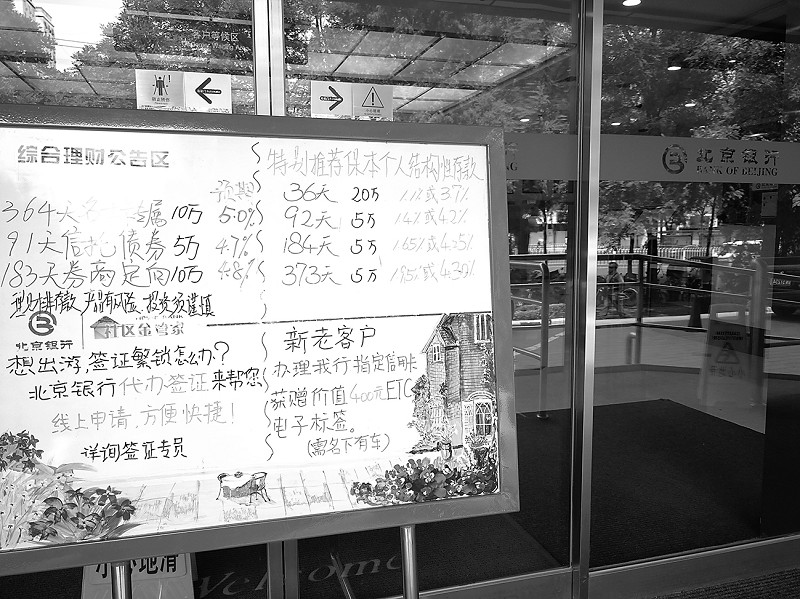 客户等候区
综合理财公告区
预期
364天 专属 10万 5.0%
91天信托债券 5万 4.7%
183天券商定向 10万 4.8%
理财非存款 产品有风险 投资须谨慎
北京银行
社区金管家
想出游,签证繁锁怎么办?
北京银行代办签证来帮您
线上申请,方便快捷!
详询签证专员
特别推荐保本个人结构性存款
36天 20万 或3.7%
92天 5万 或4.2%
184天 5万 1.65%或4.25%
373天 5万 1.95%或4.30%
新老客户
办理我行指定信用卡
获赠价值400元ETC
电子标签。
(需名下有车)
北京银行
BANK OF BEIJING
小心地滑
Welcome